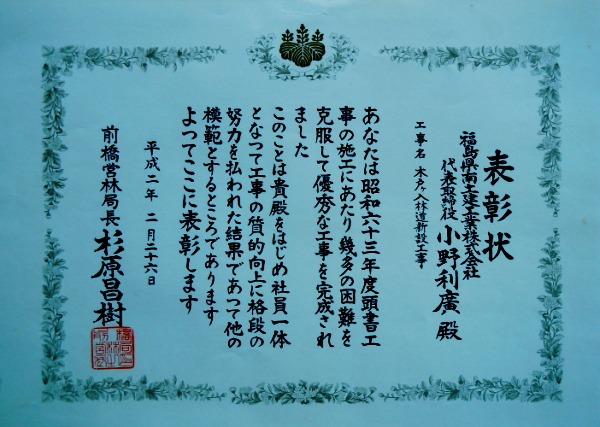 表彰状
福島県南土建工業株式会社
代表取締役 小野利廣 殿
工事名 木戸々入林道新設工事
あなたは昭和六十三年度頭書工
事の施工にあたり幾多の困難を
克服して優秀な工事を完成され
ました
このことは貴殿をはじめ社員一体
となって工事の質的向上に格段の
努力を払われた結果であって他の
模範とするところであります
よってここに表彰します
平成二年 二月二十六日
前橋営林局長 杉原昌樹